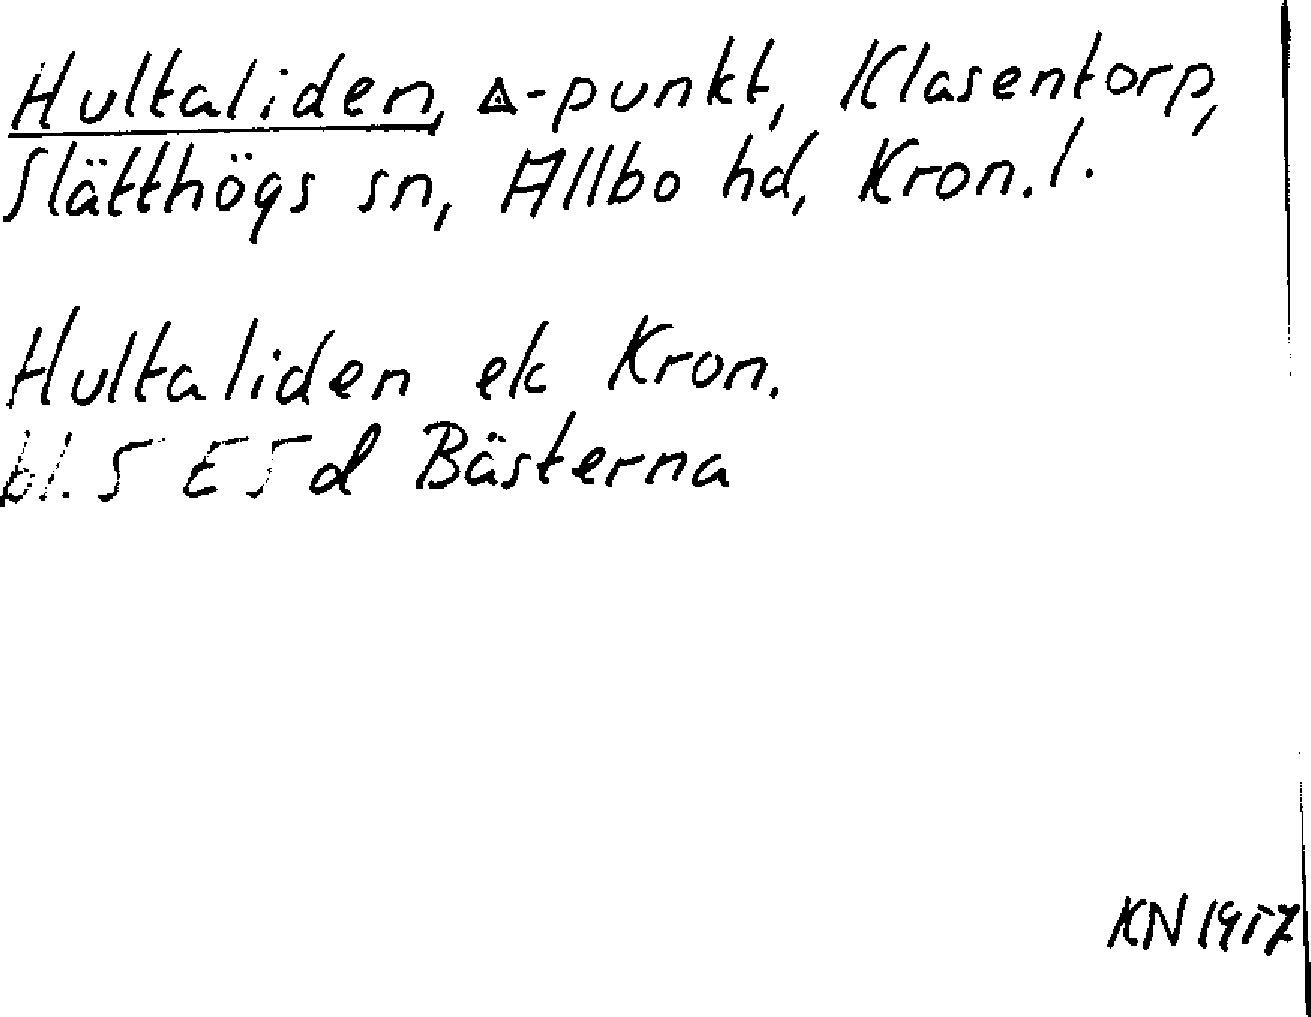 Hultaliden, △-punkt, Klasentorp,
Slätthögs sn, Allbo hd, Kron.l.
Hultaliden ek Kron.
bl. 5 E 5 d Bästerna
KN 1957